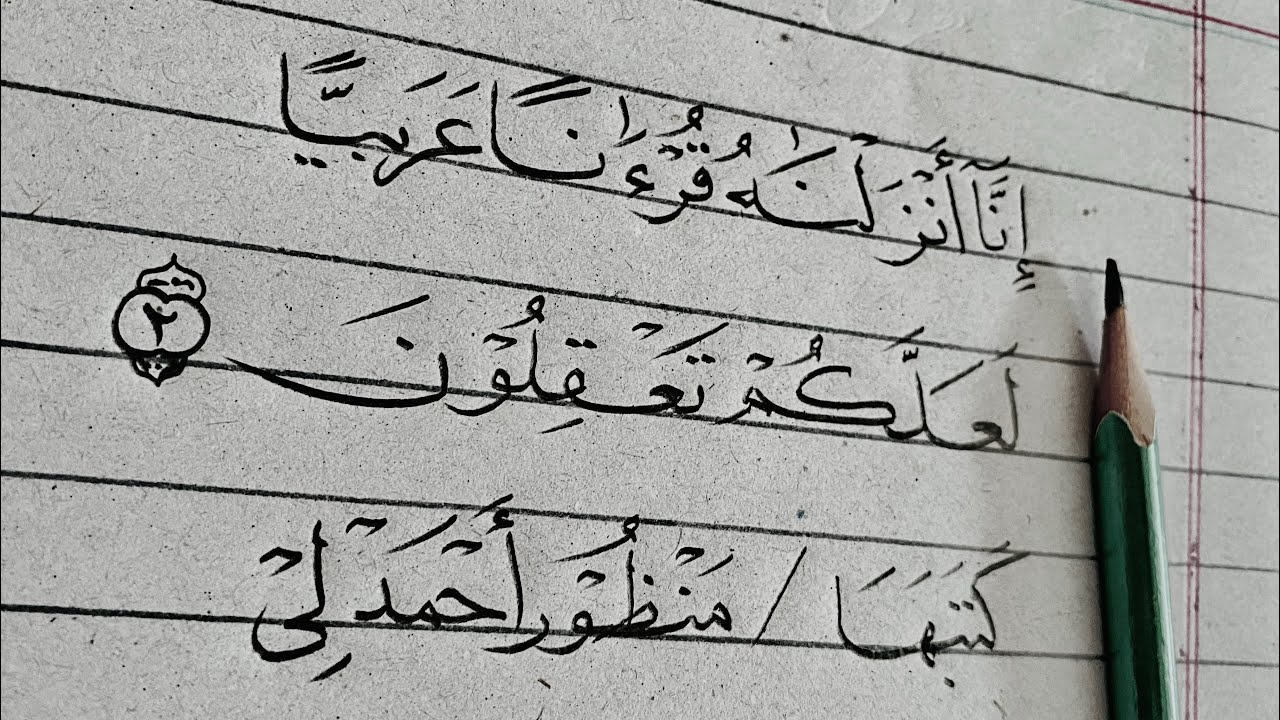 إِنَّآ أَنْزَلْنَٰهُ قُرْءَٰنًا عَرَبِيًّا
لَعَلَّكُمْ تَعْقِلُوْنَ ٢
كَتَبَهَا / مَنْظُوْر أَحْمَدْ لِيْ